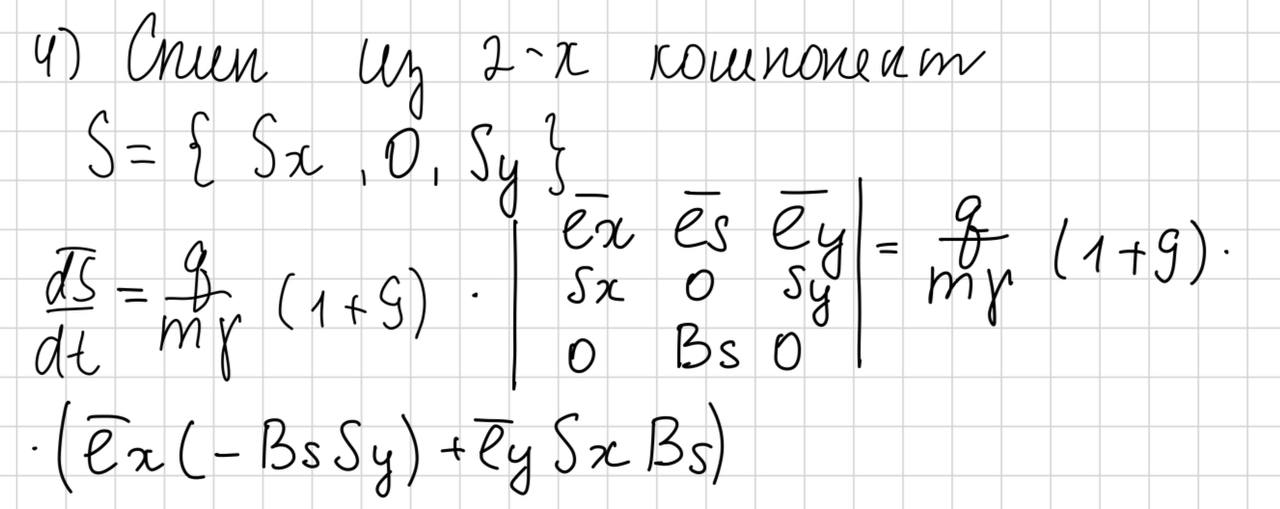 4) Спин из 2-х компонент
S = { Sx , 0, Sy }
d\overline{S}/dt = q/mγ (1+G) · | \overline{e}x \overline{e}s \overline{e}y ; Sx 0 Sy ; 0 Bs 0 | = q/mγ (1+G) ·
· (\overline{e}x (- Bs Sy) + \overline{e}y Sx Bs)